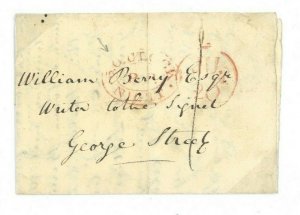 William Berry Esqr
Writer to the Signet
George Street